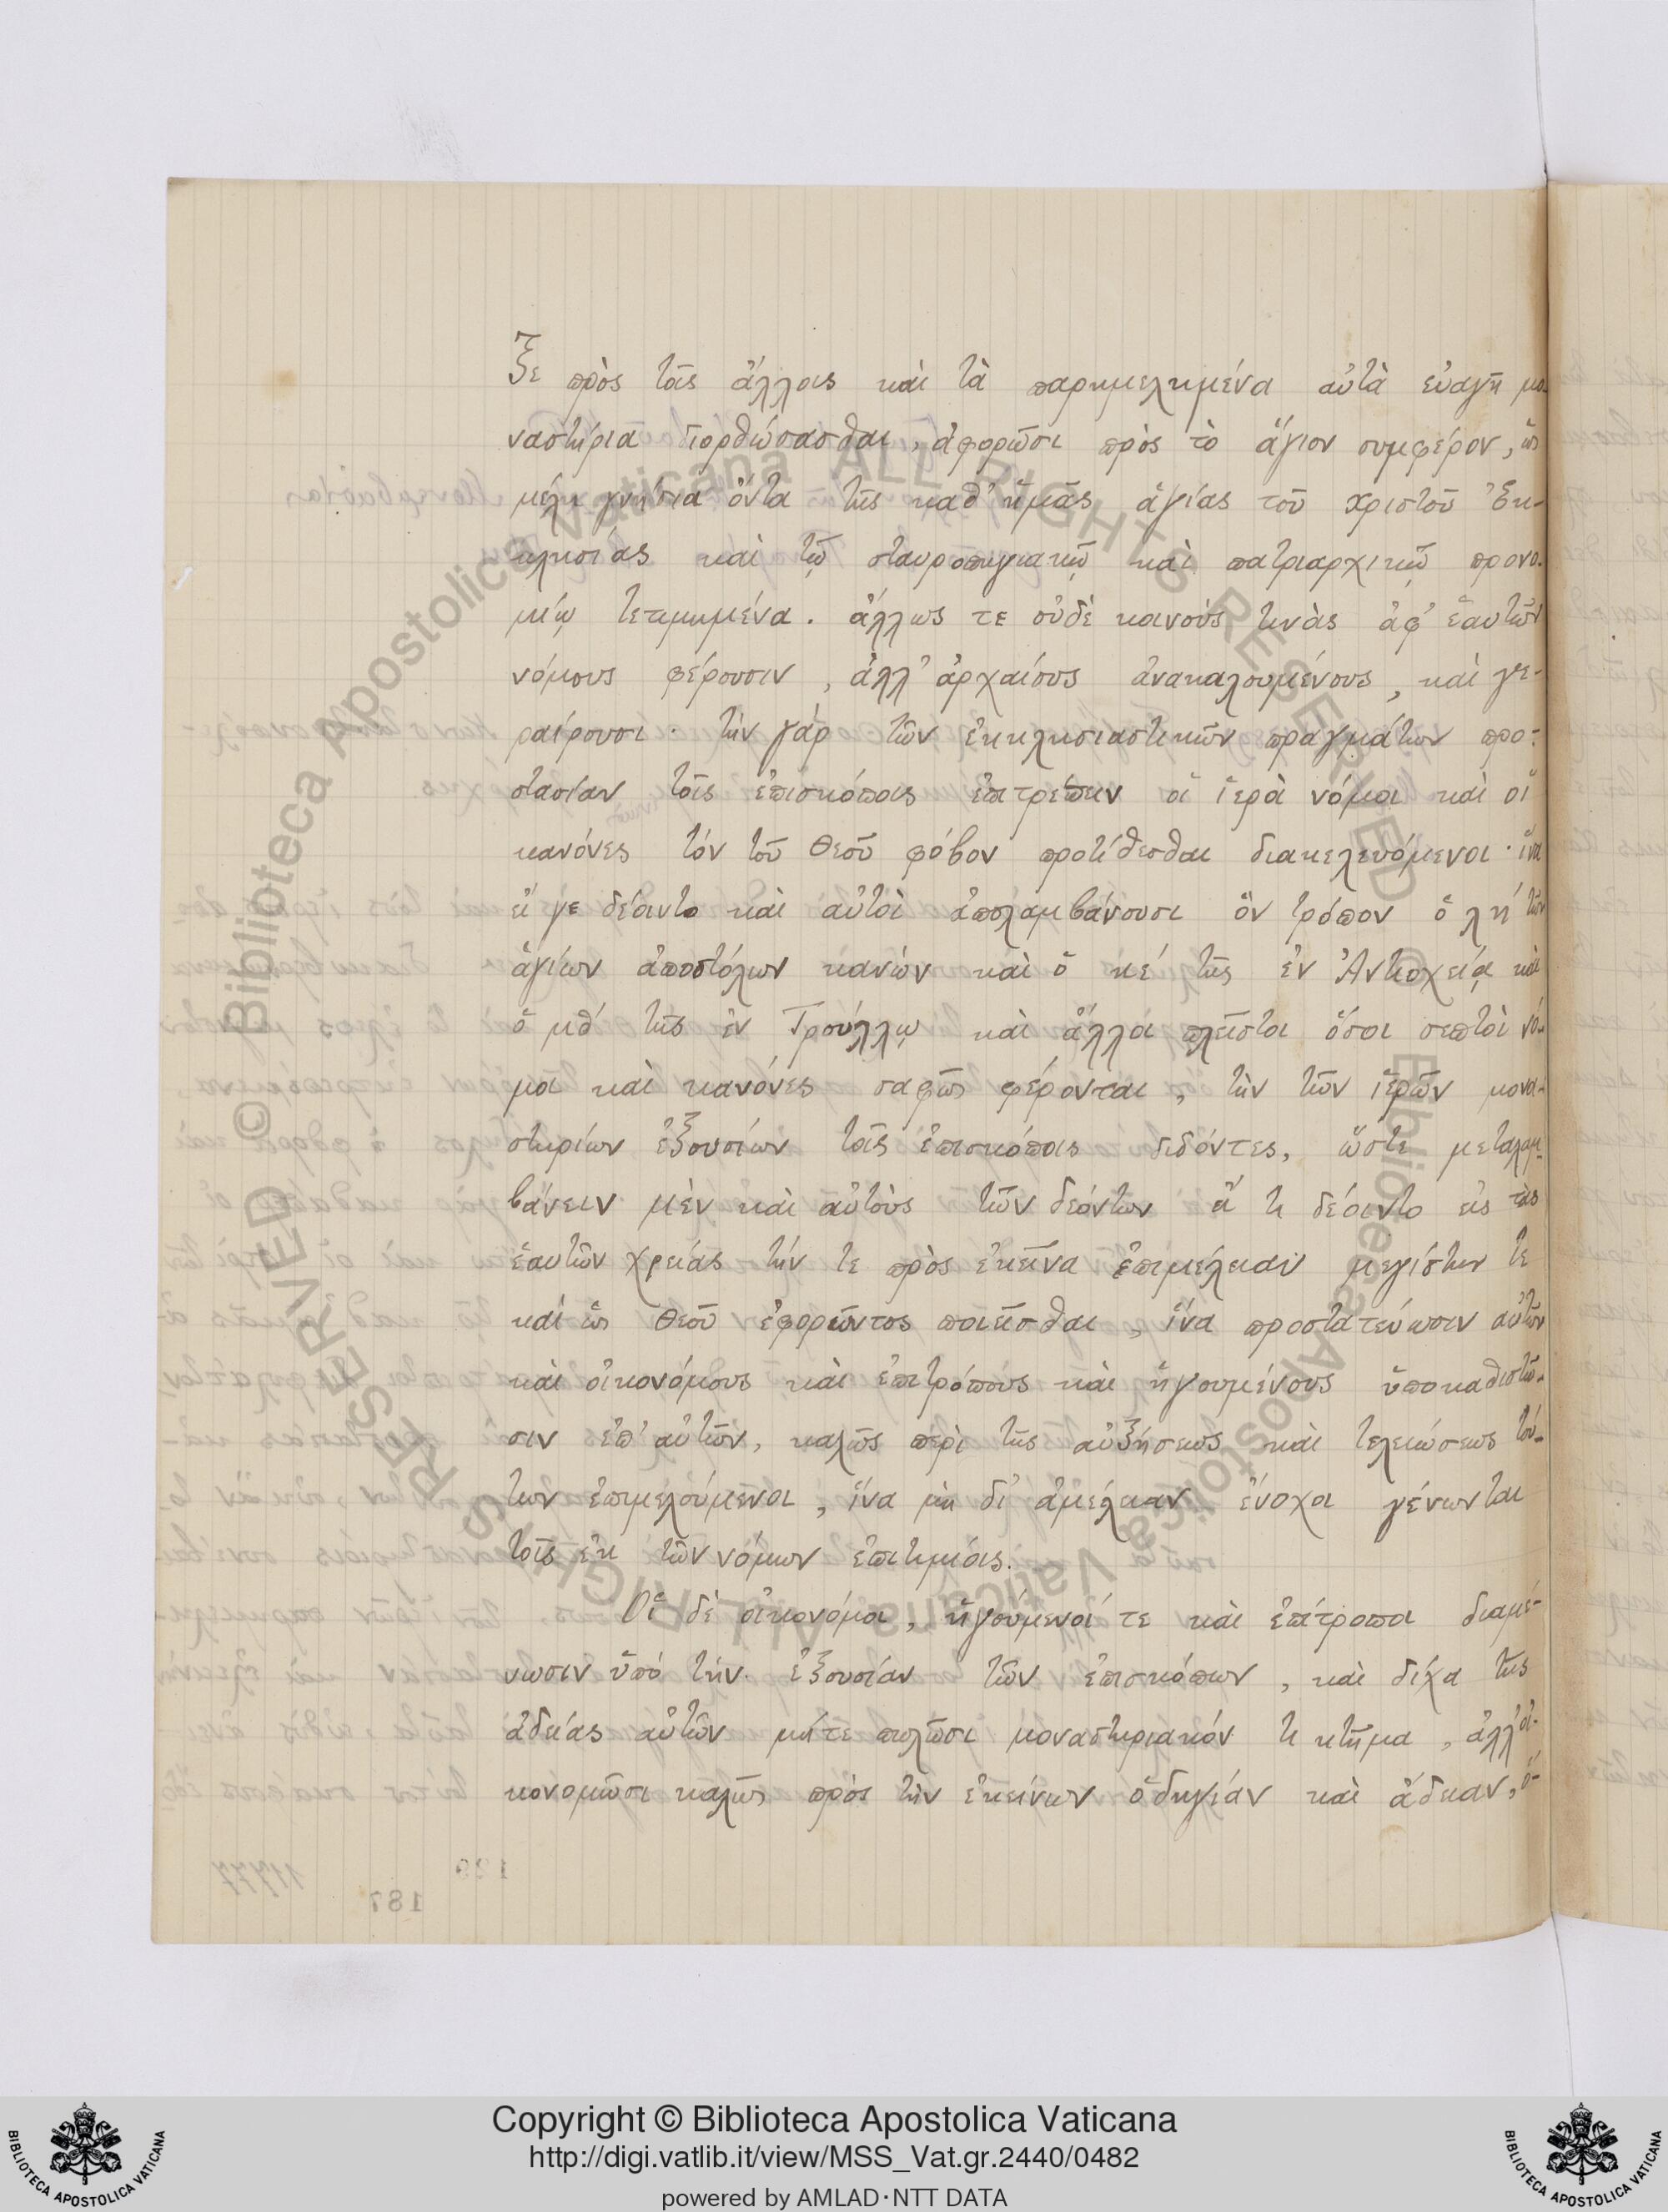 ξε πρὸς τοῖς ἄλλοις καὶ τὰ παρημελημένα αὐτὰ εὐαγῆ μο-
ναστήρια διορθώσασθαι, ἀφορῶσι πρὸς τὸ ἅγιον συμφέρον, ὡς
μέλη γνήσια ὄντα τῆς καθ' ἡμᾶς ἁγίας τοῦ Χριστοῦ Ἐκ-
κλησίας καὶ τῷ σταυροπηγιακῷ καὶ πατριαρχικῷ προνο-
μίῳ τετιμημένα. ἄλλως τε οὐδὲ καινούς τινὰς ἀφ' ἑαυτῶν
νόμους φέρουσιν, ἀλλ' ἀρχαίους ἀνακαλουμένους, καὶ γε-
ραίρουσι· τὴν γὰρ τῶν ἐκκλησιαστικῶν πραγμάτων προ-
στασίαν τοῖς ἐπισκόποις ἐπιτρέπειν οἱ ἱεροὶ νόμοι καὶ οἱ
κανόνες τὸν τοῦ Θεοῦ φόβον προτίθεσθαι διακελευόμενοι· ἵνα
εἴ γε δέοιντο καὶ αὐτοὶ ἀπολαμβάνουσι ὃν τρόπον ὁ λη' τῶν
ἁγίων ἀποστόλων κανὼν καὶ ὁ κέ τῆς ἐν Ἀντιοχείᾳ καὶ
ὁ μθ' τῆς ἐν Τρούλλῳ καὶ ἄλλοι πλεῖστοι ὅσοι σεπτοὶ νό-
μοι καὶ κανόνες σαφῶς φέρονται, τὴν τῶν ἱερῶν μονα-
στηρίων ἐξουσίων τοῖς ἐπισκόποις διδόντες, ὥστε μεταλαμ-
βάνειν μὲν καὶ αὐτοὺς τῶν δεόντων εἴ τι δέοιντο εἰς τὰς
ἑαυτῶν χρείας τήν τε πρὸς ἐκεῖνα ἐπιμέλειαν μεγίστην τε
καὶ ὡς Θεοῦ ἐφορῶντος ποιεῖσθαι, ἵνα προστατεύωσιν αὐτῶν
καὶ οἰκονόμους καὶ ἐπιτρόπους καὶ ἡγουμένους ὑποκαθιστῶ-
σιν ἐπ' αὐτῶν, καλῶς περὶ τῆς αὐξήσεως καὶ τελειώσεως τού-
των ἐπιμελούμενοι, ἵνα μὴ δι' ἀμέλειαν ἔνοχοι γένωνται
τοῖς ἐκ τῶν νόμων ἐπιτιμίοις.
Οἱ δὲ οἰκονόμοι, ἡγούμενοί τε καὶ ἐπίτροποι διαμέ-
νωσιν ὑπὸ τὴν ἐξουσίαν τῶν ἐπισκόπων, καὶ δίχα τῆς
ἀδείας αὐτῶν μήτε πωλῶσι μοναστηριακόν τι κτῆμα, ἀλλ' οἰ-
κονομῶσι καλῶς πρὸς τὴν ἐκείνων ὁδηγίαν καὶ ἄδειαν,
© Biblioteca Apostolica Vaticana ALL RIGHTS RESERVED
© Biblioteca Apostolica Vaticana ALL RIGHTS RESERVED
187
Copyright © Biblioteca Apostolica Vaticana
http://digi.vatlib.it/view/MSS_Vat.gr.2440/0482
powered by AMLAD·NTT DATA
BIBLIOTECA APOSTOLICA VATICANA
BIBLIOTECA APOSTOLICA VATICANA